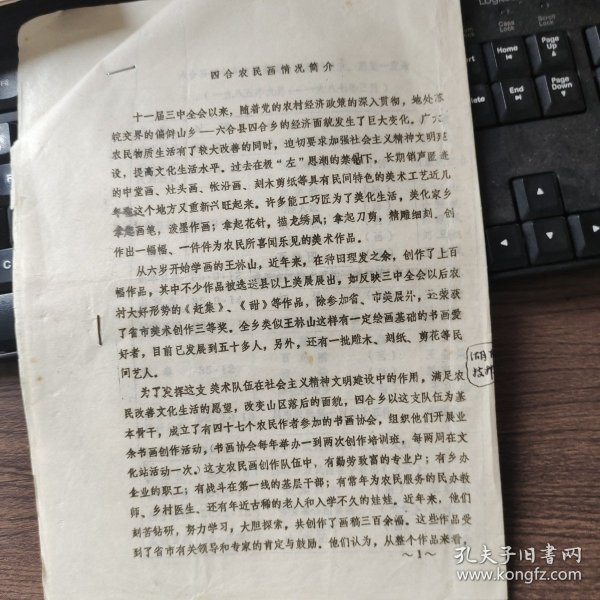 四合农民画情况简介
十一届三中全会以来，随着党的农村经济政策的深入贯彻，地处苏
皖交界的偏僻山乡——六合县四合乡的经济面貌发生了巨大变化。广大
农民物质生活有了较大改善的同时，迫切要求加强社会主义精神文明建
设，提高文化生活水平。过去在极“左”思潮的禁锢下，长期销声匿迹
的中堂画、灶头画、帐沿画、刻木剪纸等具有民间特色的美术工艺近几
年在这个地方又重新兴旺起来。许多能工巧匠为了美化生活，美化家乡
拿起画笔，泼墨作画；拿起花针，描龙绣凤；拿起刀剪，精雕细刻，创
作出一幅幅、一件件为农民所喜闻乐见的美术作品。
从六岁开始学画的王林山，近年来，在种田理发之余，创作了上百
幅作品，其中不少作品被选送县以上美展展出，如反映三中全会以后农
村大好形势的《赶集》、《甜》等作品，除参加省、市美展外，还荣获
了省市美术创作三等奖。全乡类似王林山这样有一定绘画基础的书画爱
好者，目前已发展到五十多人，另外，还有一批雕木、刻纸、剪花等民
间艺人。
为了发挥这支美术队伍在社会主义精神文明建设中的作用，满足农
民改善文化生活的愿望，改变山区落后的面貌，四合乡以这支队伍为基
本骨干，成立了有四十七个农民作者参加的书画协会，组织他们开展业
余书画创作活动，（书画协会每年举办一到两次创作培训班，每两周在文
化站活动一次。）这支农民画创作队伍中，有勤劳致富的专业户；有乡办
企业的职工；有战斗在第一线的基层干部；有常年为农民服务的民办教
师、乡村医生，还有年近古稀的老人和入学不久的娃娃，近年来，他们
刻苦钻研，努力学习，大胆探索，共创作了画稿三百余幅。这些作品受
到了省市有关领导和专家的肯定与鼓励。他们认为，从整个作品来看，
～1～
孔夫子旧书网
www.kongfz.com
Home
Page Up
End
Page Down
Delete